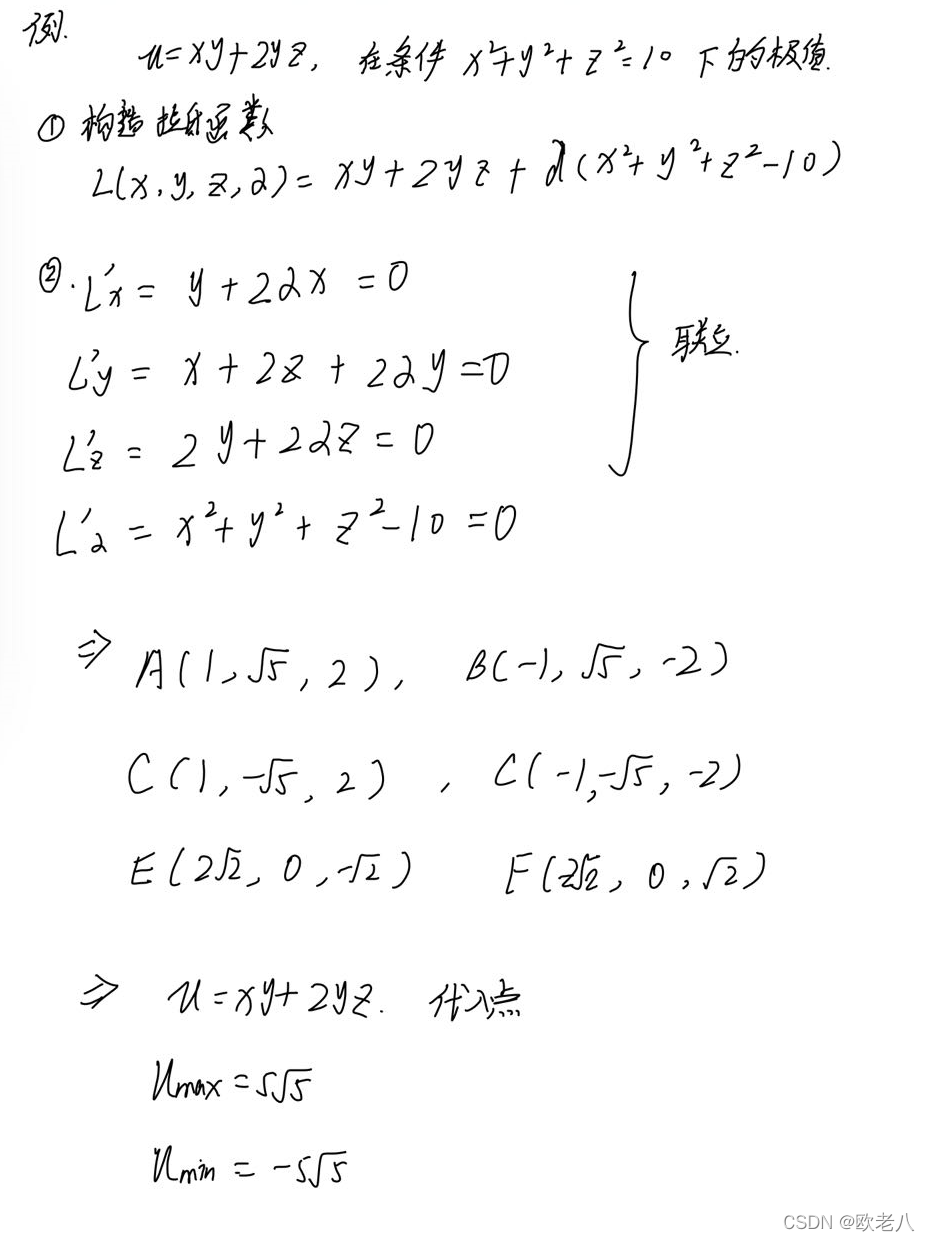 例.
u=xy+2yz, 在条件 x²+y²+z²=10 下的极值.
① 构造拉氏函数
L(x,y,z,λ)= xy+2yz+λ(x²+y²+z²-10)
②. L'x = y+2λx =0
L'y = x+2z+2λy=0
联立.
L'z = 2y+2λz=0
L'λ = x²+y²+z²-10=0
⇒ A(1,√5,2), B(-1,√5,-2)
C(1,-√5,2), C(-1,-√5,-2)
E(2√2,0,-√2) F(2√2,0,√2)
⇒ u=xy+2yz. 代入点
umax=5√5
umin=-5√5
CSDN @欧老八